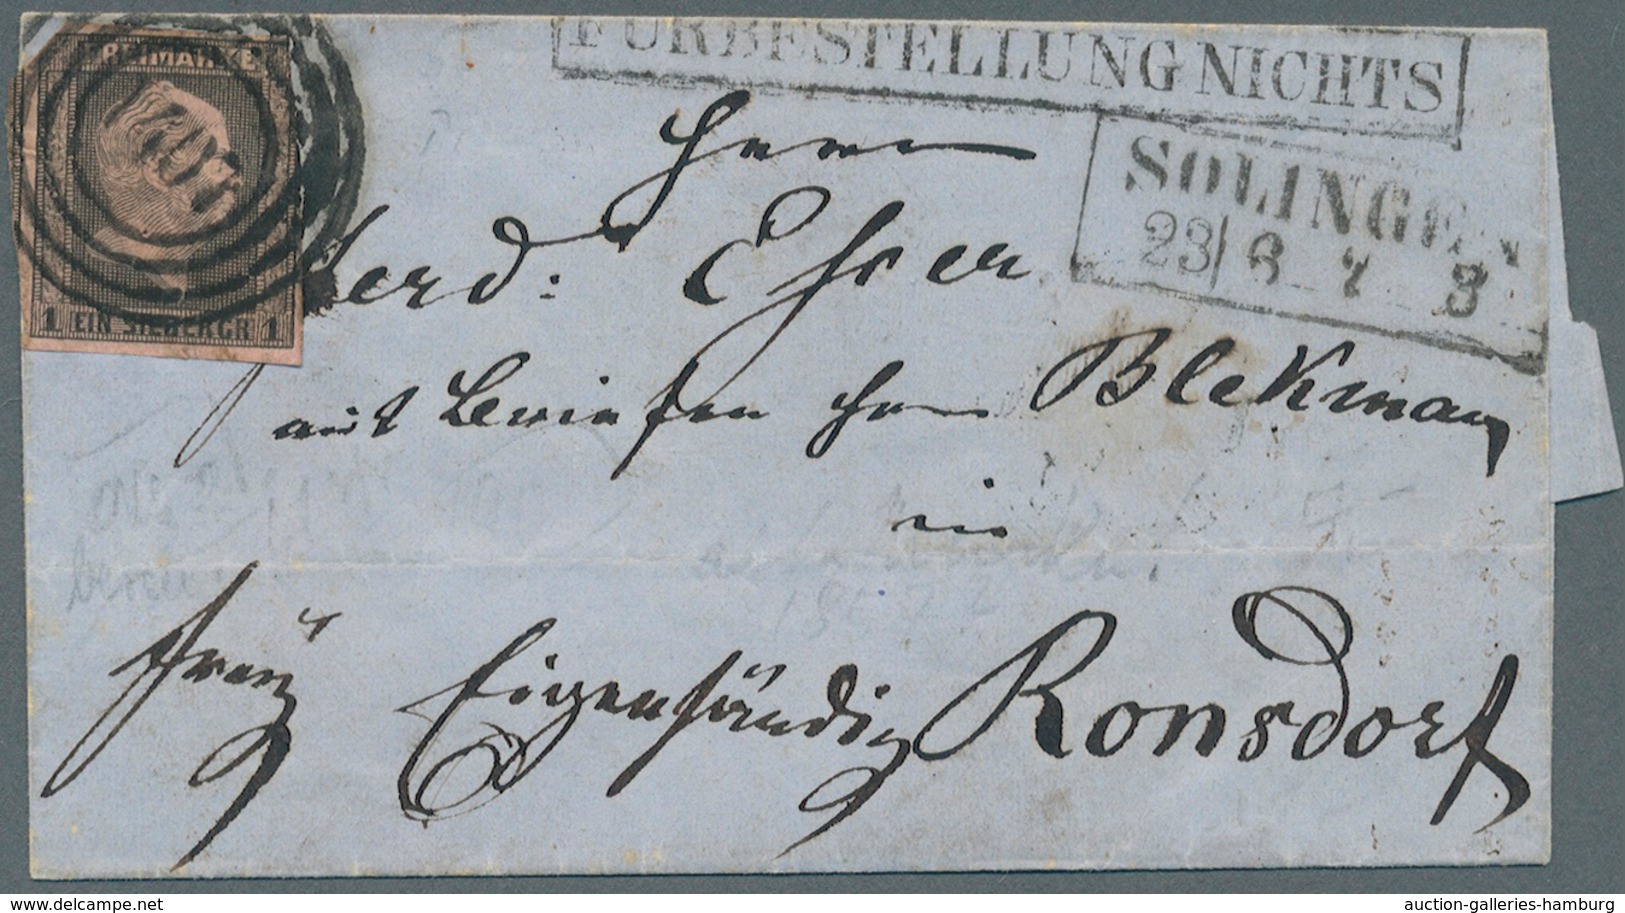 FREIMARKE
1 EIN SILBERGR 1
FÜR BESTELLUNG NICHTS
SOLINGEN
23/6 7 - 8
Herrn
Ferd: Ehren
mit Briefen Herrn Blekmann
in
franz
Eigenhändig Ronsdorf
auction-galleries-hamburg